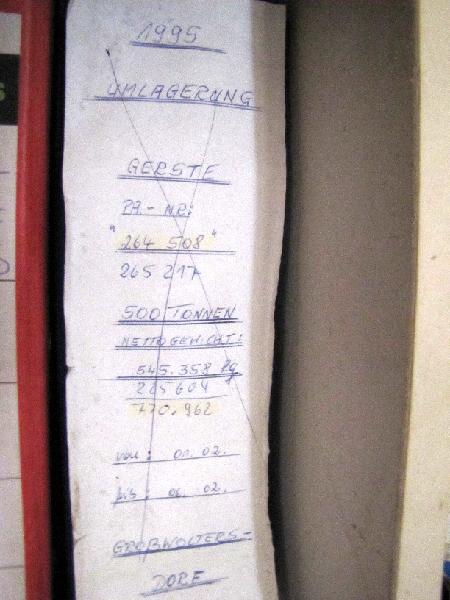 1995
UMLAGERUNG
GERSTE
PA.-NR:
"264 508"
265 217
500 TONNEN
NETTOGEWICHT:
545.358 kg
225604
770.962
von: 01. 02.
bis: 06. 02.
GROßWOLTERS-
DORF